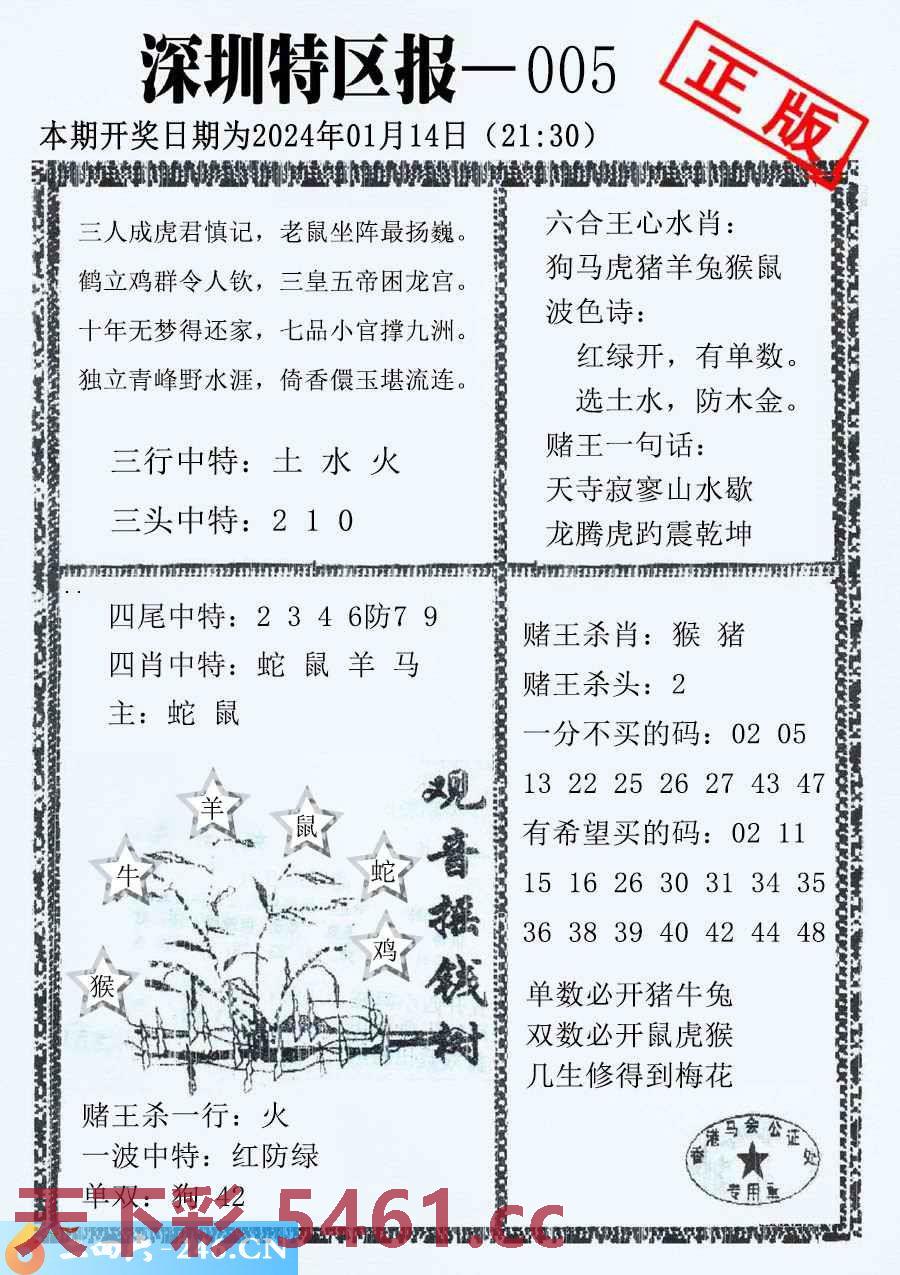 深圳特区报—005
正版
本期开奖日期为2024年01月14日（21:30）
三人成虎君慎记，老鼠坐阵最扬巍。
鹤立鸡群令人钦，三皇五帝困龙宫。
十年无梦得还家，七品小官撑九洲。
独立青峰野水涯，倚香儇玉堪流连。
三行中特：土 水 火
三头中特：2 1 0
六合王心水肖：
狗马虎猪羊兔猴鼠
波色诗：
红绿开，有单数。
选土水，防木金。
赌王一句话：
天寺寂寥山水歇
龙腾虎趵震乾坤
四尾中特：2 3 4 6防7 9
四肖中特：蛇 鼠 羊 马
主：蛇 鼠
羊
鼠
牛
蛇
鸡
猴
观音摇钱树
赌王杀一行：火
一波中特：红防绿
单双：狗 42
赌王杀肖：猴 猪
赌王杀头：2
一分不买的码：02 05
13 22 25 26 27 43 47
有希望买的码：02 11
15 16 26 30 31 34 35
36 38 39 40 42 44 48
单数必开猪牛兔
双数必开鼠虎猴
几生修得到梅花
香港马会公证处
专用章
天下彩 5461.cc
-246.CN